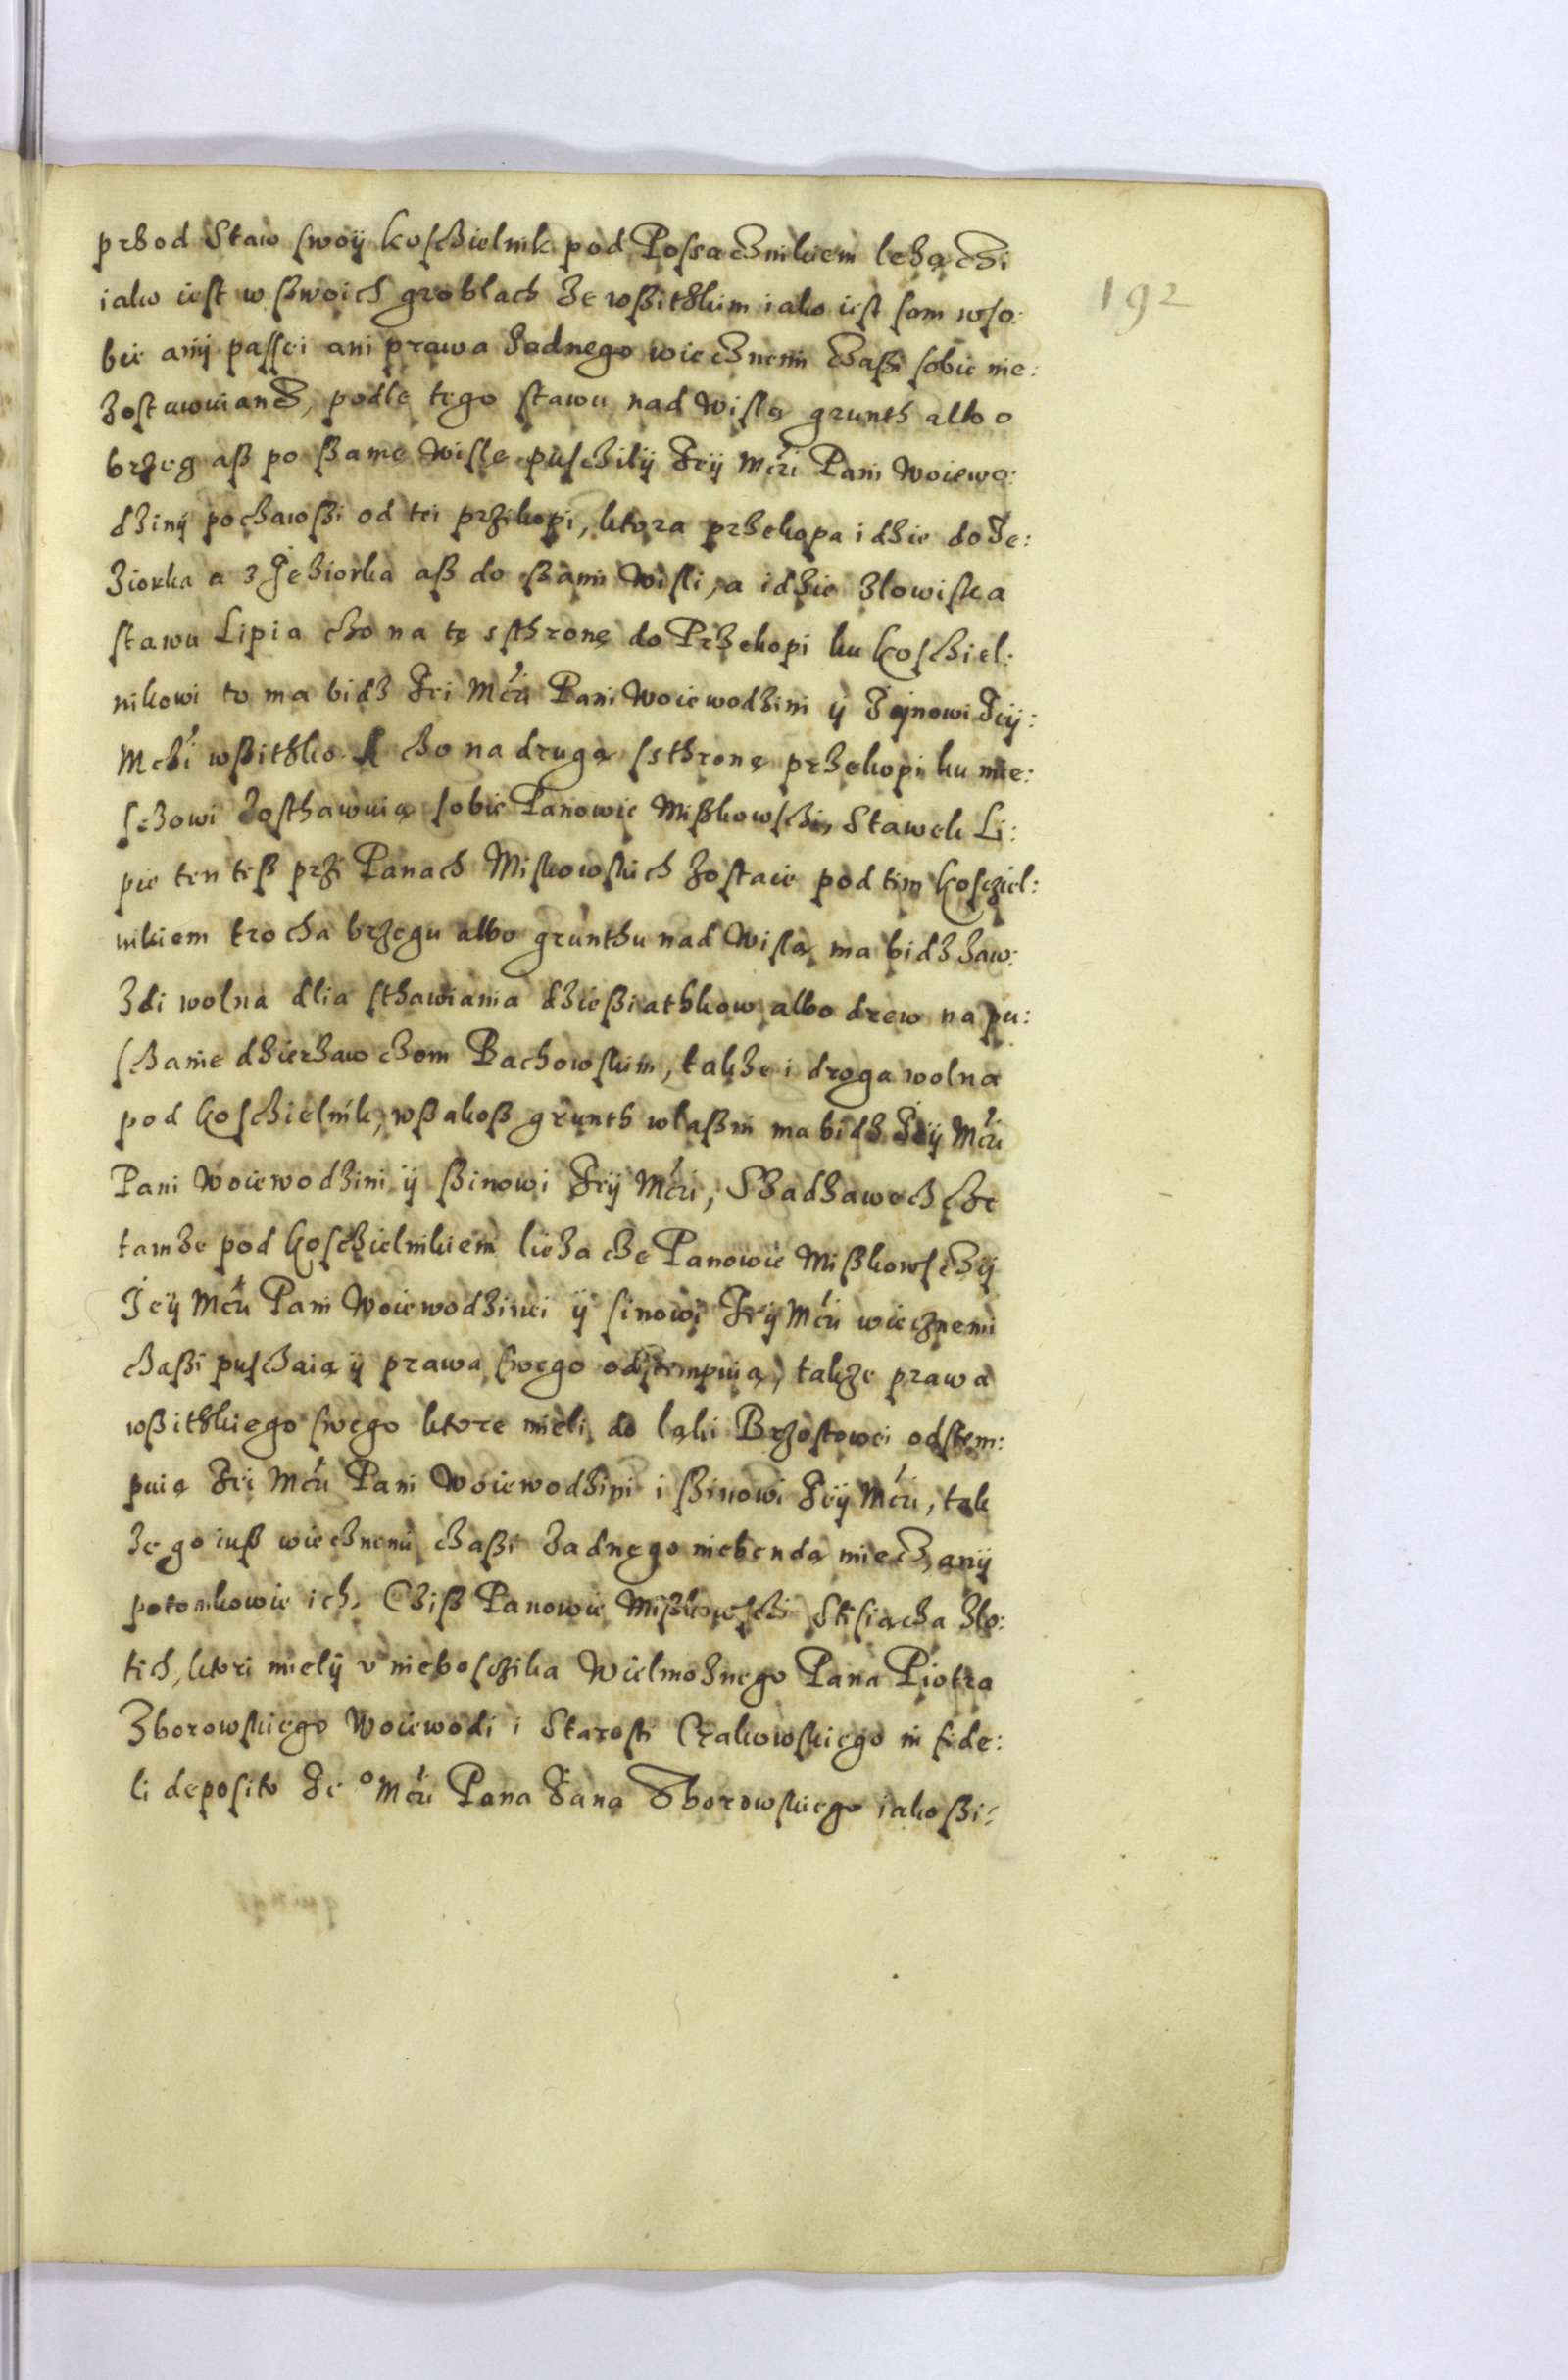 przod Staw swoÿ kosczielnik pod Possacznikiem leżączi
192
iako iest w ßwoich groblach ze wßitżkim iako iest sam wso:
bie anÿ passei ani prawa żadnego wiecznemi czaßi sobie nie:
zostawuiancz, podle tego stawu nad Wislą grunth albo
brzeg aß po ßame Wisle pusczilÿ Jeÿ Mczi Pani Woiewo:
dzinÿ poczawßi od tei przikopi, ktora przekopa idzie do Je:
ziorka a z Jeziorka aß do ßami Wisli, a idzie zlowiska
stawu Lipia czo na tę sthronę do Przekopi ku kosciel:
nikowi to ma bidz Jei Mczi Pani Woiewodzini ÿ Sÿnowi Jeÿ:
Mczi wßitżko. A czo na drugą sthronę przekopi ku mie:
sczowi zosthawuią sobie Panowie Mißkowsczi, Stawek Li:
pie ten teß przi Panach Miskowskich zostaie pod tim kosciel:
nikiem trocha brzegu albo grunthu nad Wislą ma bidz zaw:
żdi wolna dlia sthawiania dzießiathkow albo drew na pu:
sczanie dzierżawczom Bachowskim, także i droga wolna
pod kosczielnik, wßakoß grunth wlaßni ma bidz Jeÿ Mczi
Pani Woiewodzini ÿ ßinowi Jeÿ Mczi, Sadzawecżkę
tamże pod kosczielnikiem lieżacze Panowie Mißkowsczÿ
Jeÿ Mczi Pani Woiewodzinei ÿ sinowi Jeÿ Mczi wiecznemi
czaßi pusczaią ÿ prawa swego odstempuią, także prawa
wßitżkiego swego ktore mieli do ląki Brzostowei odstem:
puią Jei Mczi Pani Woiewodzini i ßinowi Jeÿ Mczi, tak
że go iuß wiecznemi czaßi żadnego niebendą miecz, anÿ
potomkowie ich. Cziß Panowie Mißkowsczi Stisiącza zło:
tich, ktori mielÿ v nieboscżika Wielmożnego Pana Piotra
Zborowskiego Woiewodi i Starosti Crakowskiego in fide:
li deposito Je⁰ Mczi Pana Jana Zborowskiego iako ßi: